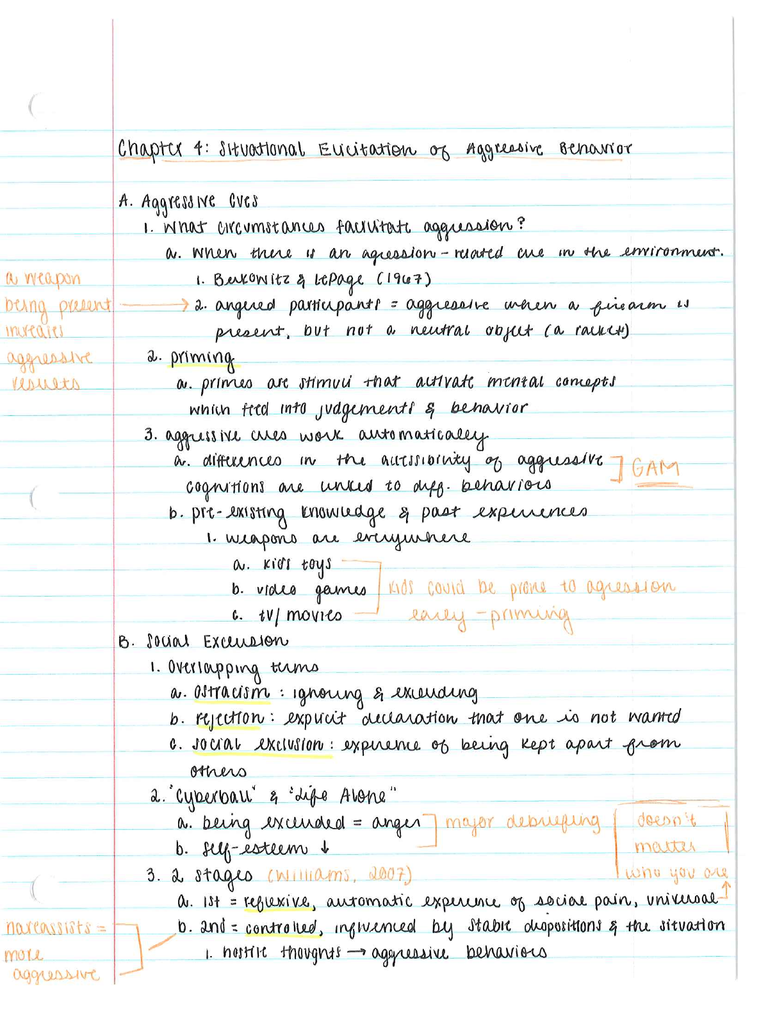 Chapter 4: Situational Elicitation of Aggressive Behavior
A. Aggressive Cues
1. What circumstances facilitate aggression?
a. When there is an agression-related cue in the environment.
1. Berkowitz & LePage (1967)
a weapon
being present
increases
aggressive
results
2. angered participants = aggressive when a firearm is
present, but not a neutral object (a racket)
2. priming
a. primes are stimuli that activate mental concepts
which feed into judgements & behavior
3. aggressive cues work automatically
a. differences in the accessibility of aggressive
cognitions are linked to diff. behaviors
GAM
b. pre-existing knowledge & past experiences
1. weapons are everywhere
a. kids toys
b. video games
c. tv/movies
kids could be prone to agression
early - priming
B. Social Exclusion
1. Overlapping terms
a. ostracism: ignoring & excluding
b. rejection: explicit declaration that one is not wanted
c. social exclusion: experience of being kept apart from
others
2. "Cyberball" & "Life Alone"
a. being excluded = anger
b. self-esteem ↓
major debriefing
doesn't
matter
who you are
3. 2 stages (Williams, 2007)
a. 1st = reflexive, automatic experence of social pain, universal
b. 2nd = controlled, influenced by stable dispositions & the situation
narcassists =
more
aggressive
1. hostile thoughts → aggressive behaviors